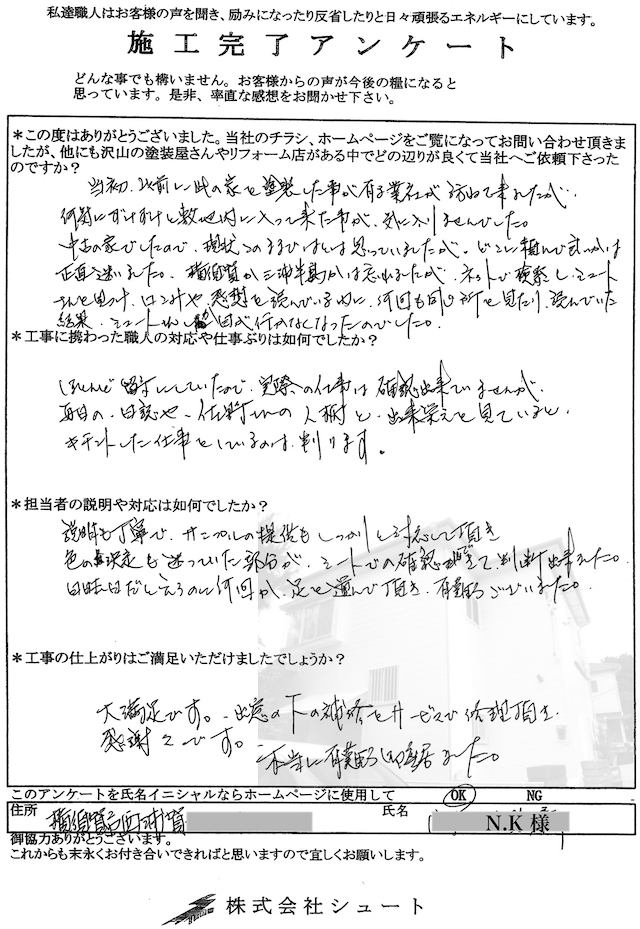 私塗職人はお客様の声を聞き、励みになったり反省したりと日々頑張るエネルギーにしています。
施工完了アンケート
どんな事でも構いません。お客様からの声が今後の糧になると
思っています。是非、率直な感想をお聞かせ下さい。
＊この度はありがとうございました。当社のチラシ、ホームページをご覧になってお問い合わせ頂きま
したが、他にも沢山の塗装屋さんやリフォーム店がある中でどの辺りが良くて当社へご依頼下さった
のですか？
当初、以前に此の家を塗装した事が有る業社が訪ねて来ましたが、
何回もずけずけと敷地内に入って来た事が、気に入りませんでした。
中古の家でしたので、現状
は思っていましたが、どこに頼んで良いかは
正直迷いました。横須賀か三浦半島かは忘れましたが、ネットで検索し、シュート
さんを見つけ、口コミや、感想を読んでいる内に、何回も同じ所を見たり、読んでいた
結果、シュートさんしか目が行かなくなったのでした。
＊工事に携わった職人の対応や仕事ぶりは如何でしたか？
ほとんど留守にしていたので、実際の仕事は確認出来ていませんが、
毎日の、日誌や、
人柄と、出来栄えを見ていると、
キチントした仕事をしているのは、判ります。
＊担当者の説明や対応は如何でしたか？
説明も丁寧で、サンプルの提供もしっかりと対応して頂き
色の決定も迷っていた部分が、シートでの確認が出来て、判断出来ました。
日曜日だと言うのに何回か、足を運んで頂き、有難うございました。
＊工事の仕上がりはご満足いただけましたでしょうか？
大満足です。出窓の下の補修をサービスで修理頂き
感謝々です。
本当に有難う御座居ました。
このアンケートを氏名イニシャルならホームページに使用して OK NG
住所 横須賀市 氏名 N.K 様
御協力ありがとうございます。
これからも末永くお付き合いできればと思いますので宜しくお願いします。
株式会社シュート